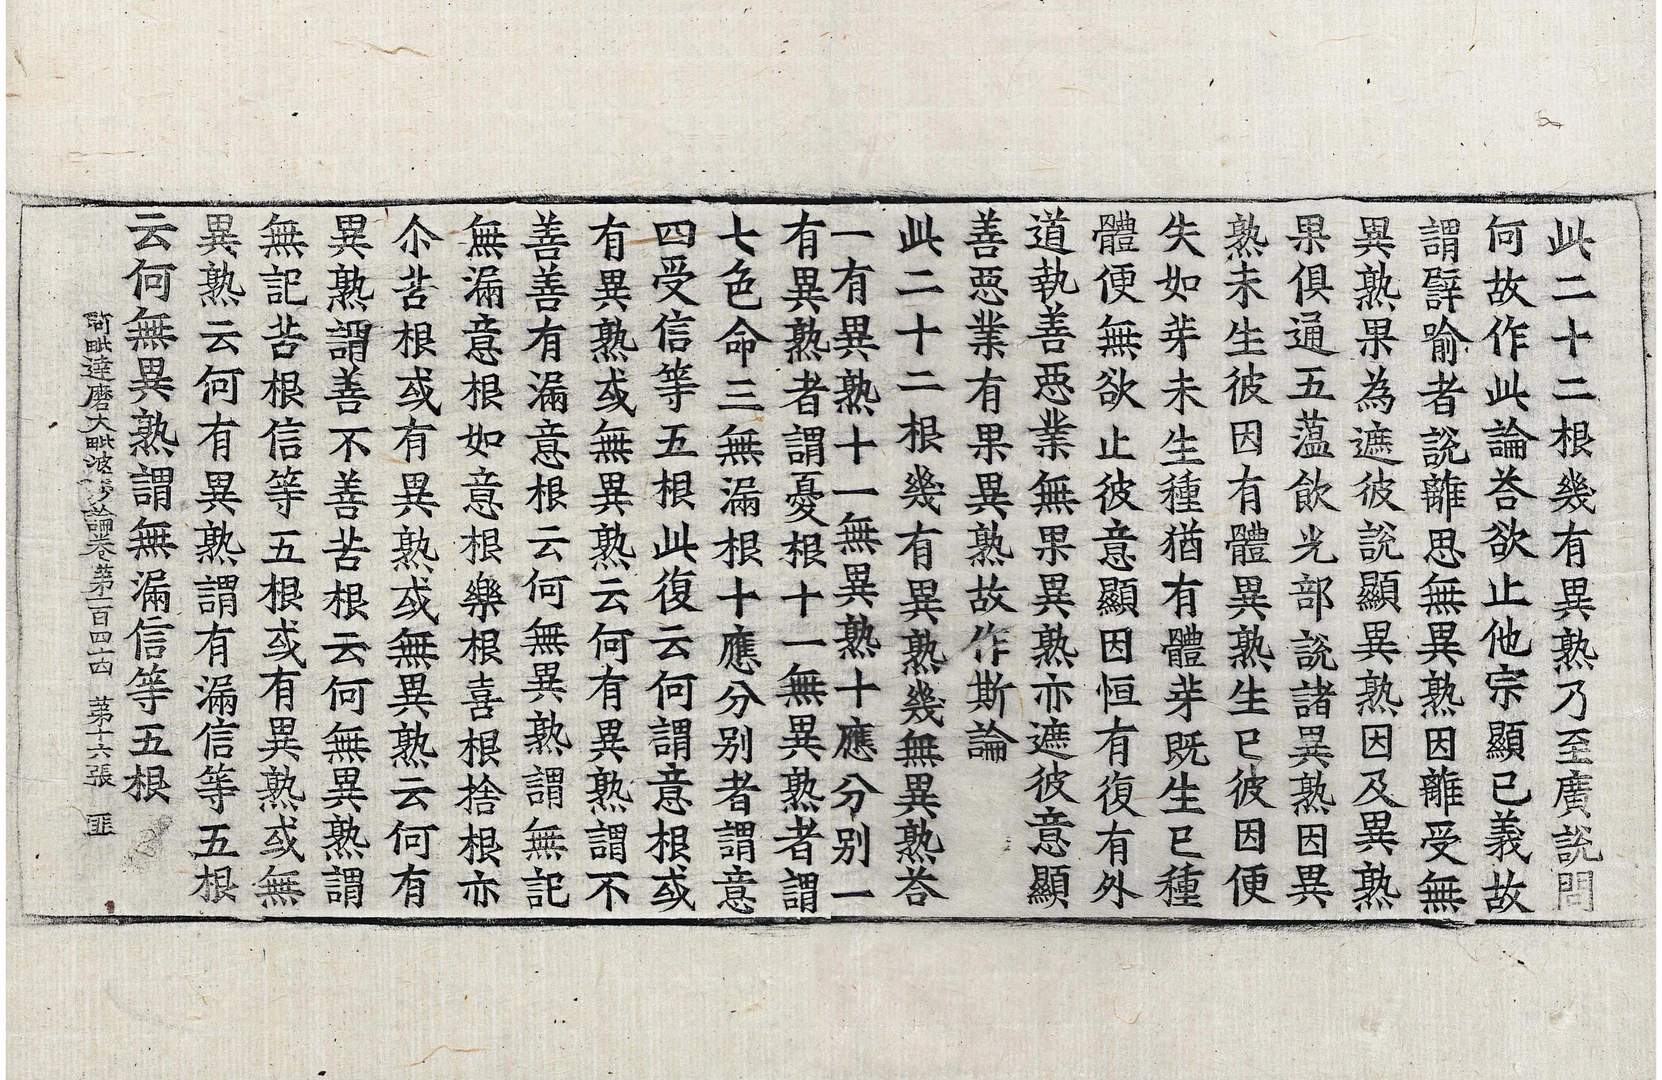 此二十二根幾有異熟乃至廣說問
何故作此論荅欲止他宗顯已義故
謂譬喻者說離思無異熟因離受無
異熟果為遮彼說顯異熟因及異熟
果俱通五蘊飲光部說諸異熟因異
熟未生彼因有體異熟生已彼因便
失如芽未生種猶有體芽既生已種
體便無欲止彼意顯因恒有復有外
道執善惡業無果異熟亦遮彼意顯
善惡業有果異熟故作斯論
此二十二根幾有異熟幾無異熟荅
一有異熟十一無異熟十應分別一
有異熟者謂憂根十一無異熟者謂
七色命三無漏根十應分別者謂意
四受信等五根此復云何謂意根或
有異熟或無異熟云何有異熟謂不
善善有漏意根云何無異熟謂無記
無漏意根如意根樂根喜根捨根亦
尒苦根或有異熟或無異熟云何有
異熟謂善不善苦根云何無異熟謂
無記苦根信等五根或有異熟或無
異熟云何有異熟謂有漏信等五根
云何無異熟謂無漏信等五根
阿毗達磨大毗婆沙論卷第一百四十四 第十六張 匪